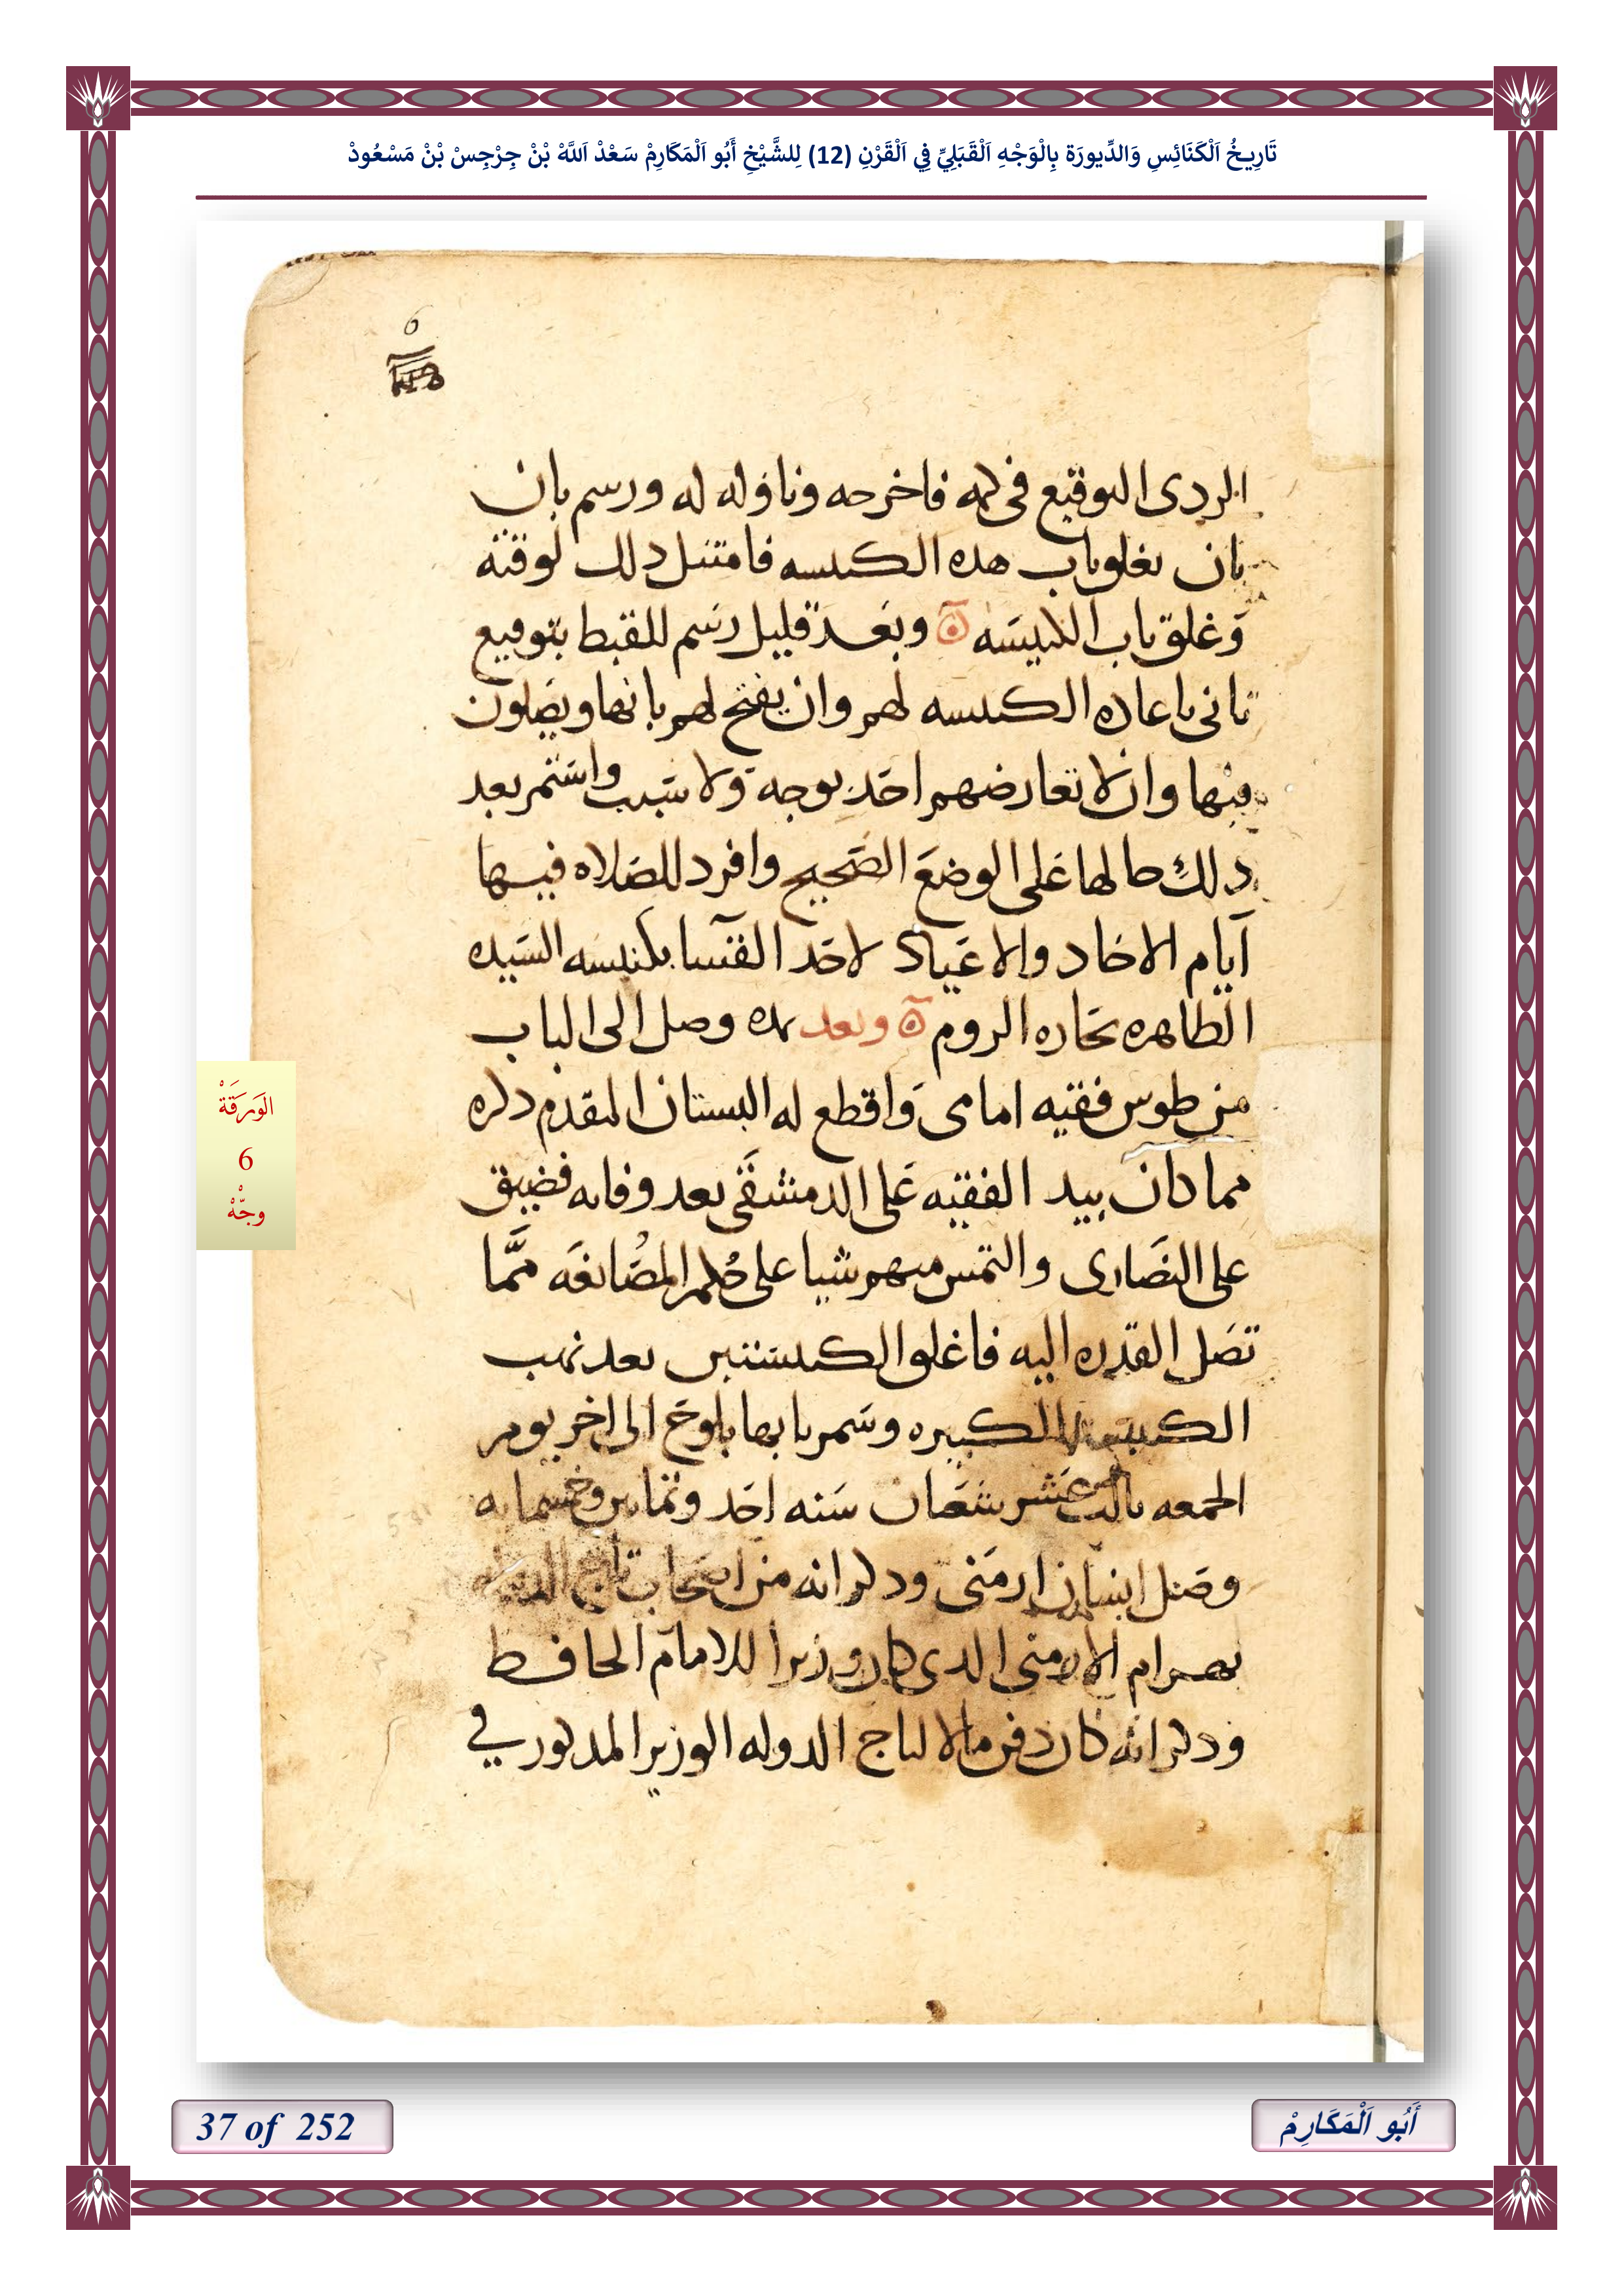 تَارِيخُ اَلْكَنَائِسِ وَالدِّيورَة بِالْوَجْهِ اَلْقَبَلِيِّ فِي اَلْقَرْنِ (12) لِلشَّيْخِ أَبُو اَلْمَكَارِمْ سَعْدْ اَللَّهْ بْنْ جِرْجِسْ بْنْ مَسْعُودْ
6
الردى التوقيع فى كمه فاخرجه وناوله له ورسم بان
بان يغلق باب هده الكنيسه فامتثل دلك لوقته
وغلق باب الكنيسه ه وبعد قليل رسم للقبط بتوقيع
تانى باعاده الكنيسه لهم وان يفتح لهم بابها ويصلون
فيها وان لا تعارضهم احد بوجه ولا سبب واستمر بعد
دلك حالها على الوضع الصحيح وافرد للصلاه فيها
ايام الاحاد والاعياد لاحد القسا بكنيسه السيده
الطاهره بحاره الروم ه وبعد مده وصل الى الباب
من طوس فقيه امامى واقطع له البستان المقدم دكره
مما كان بيد الفقيه على الدمشقى بعد وفاته فضيق
على النصارى والتمس منهم شيا على حكم المصانعه مما
تصل القدره اليه فاغلق الكنيستين بعد نهب
الكنيسه الكبيره وسمر بابها بلوح الى اخر يوم
الجمعه تالت عشر شعبان سنه احد وتمانين وخمسمايه
وصل انسان ارمنى ودكر انه من اصحاب تاج الدوله
بهرام الارمنى الدى كان وزيرا للامام الحافظ
ودكر انه كان دفن مالا لتاج الدوله الوزير المدكور في
الوَرَقَةْ
6
وجّهْ
37 of 252
أَبُو اَلْمَكَارِمْ